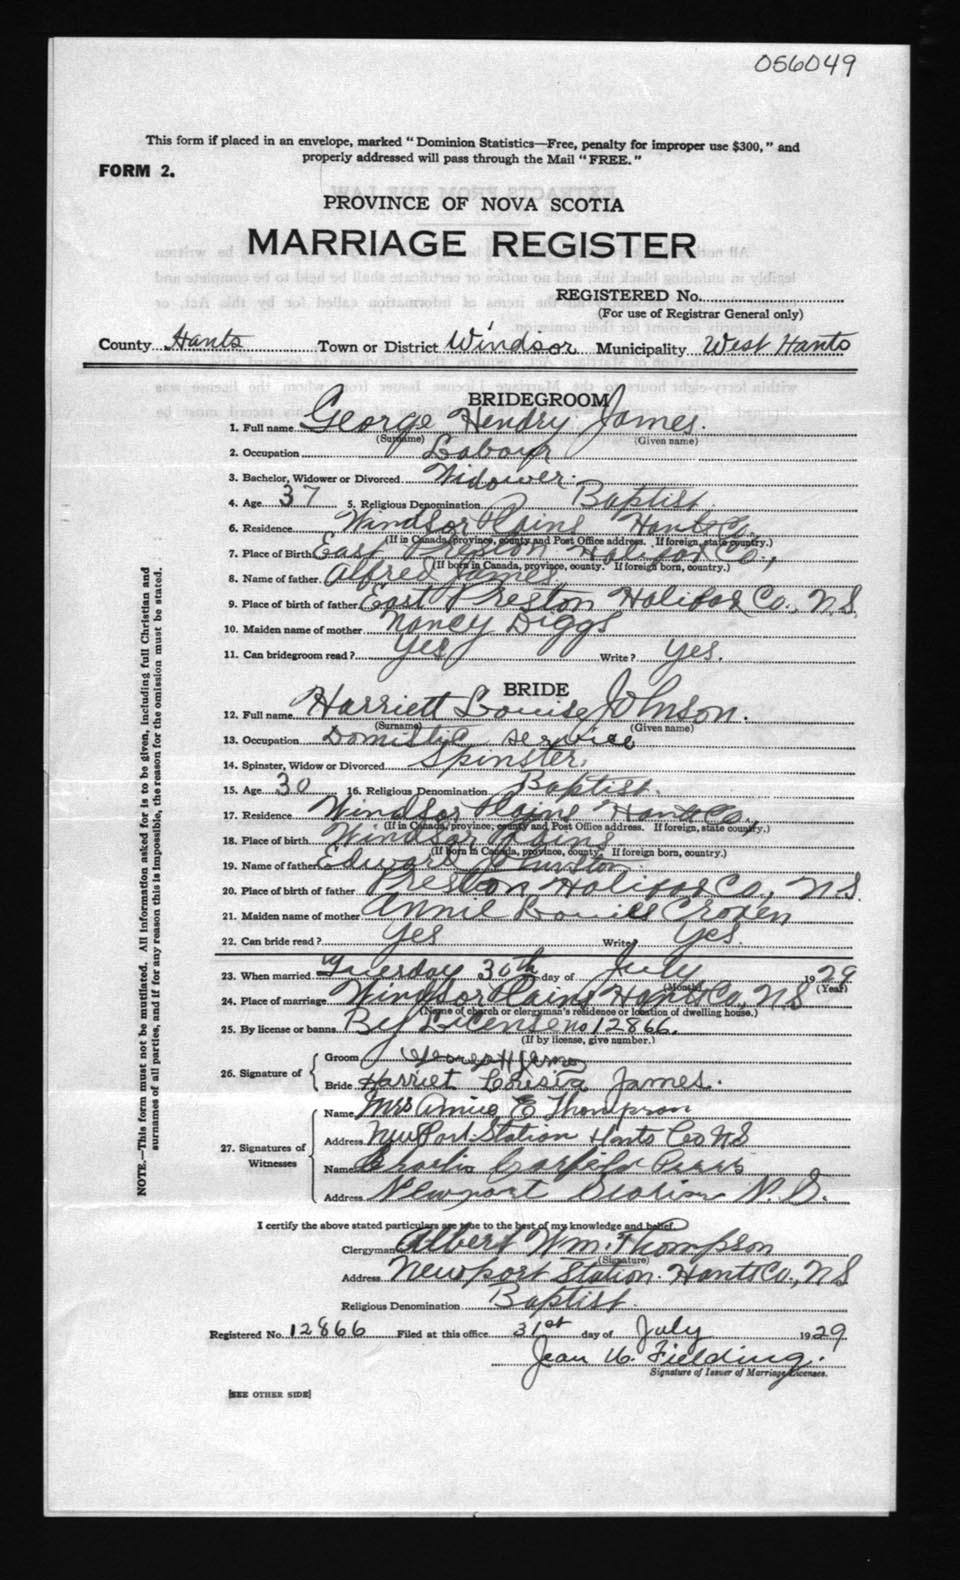 056049
This form if placed in an envelope, marked "Dominion Statistics—Free, penalty for improper use $300," and
properly addressed will pass through the Mail "FREE."
FORM 2.
PROVINCE OF NOVA SCOTIA
MARRIAGE REGISTER
REGISTERED No.
(For use of Registrar General only)
County Hants Town or District Windsor Municipality West Hants
BRIDEGROOM
1. Full name George Hendry James.
(Surname) (Given name)
2. Occupation Labour
3. Bachelor, Widower or Divorced Widower.
4. Age 37 5. Religious Denomination Baptist
6. Residence Windsor Plains Hants Co.
(If in Canada, province, county and Post Office address. If foreign, state country.)
7. Place of Birth East Preston Halifax Co.,
(If born in Canada, province, county. If foreign born, country.)
8. Name of father Alfred James
9. Place of birth of father East Preston Halifax Co., N.S.
10. Maiden name of mother Nancy Diggs
11. Can bridegroom read? Yes Write? Yes.
BRIDE
12. Full name Harriett Louise Johnson.
(Surname) (Given name)
13. Occupation Domistic service
14. Spinster, Widow or Divorced Spinster.
15. Age 30 16. Religious Denomination Baptist.
17. Residence Windsor Plains Hants Co.,
(If in Canada, province, county and Post Office address. If foreign, state country.)
18. Place of birth Windsor Plains
(If born in Canada, province, county. If foreign born, country.)
19. Name of father Edward Johnston
20. Place of birth of father Preston Halifax Co., N.S.
21. Maiden name of mother Annie Louise Croxen
22. Can bride read? Yes Write? Yes.
23. When married Tuesday 30th day of July 1929
(Month) (Year)
24. Place of marriage Windsor Plains Hants Co., N.S
(Name of church or clergyman's residence or location of dwelling house.)
25. By license or banns By License no 12866.
(If by license, give number.)
26. Signature of
Groom George H James
Bride Harriet James.
27. Signatures of Witnesses
Name Mrs Annie E Thompson
Address NewPort Station Hants Coo NS
Name Charlie Garfield
Address Newport Station N.S.
I certify the above stated particulars are true to the best of my knowledge and belief.
Clergyman Albert Wm. Thompson
(Signature)
Address Newport Station Hants Co., N.S
Religious Denomination Baptist.
Registered No. 12866 Filed at this office 31st day of July 1929
Jean W. Fielding.
Signature of Issuer of Marriage Licenses.
[SEE OTHER SIDE]
NOTE.—This form must not be mutilated. All information asked for is to be given, including full Christian and
surnames of all parties, and if for any reason this is impossible, the reason for the omission must be stated.